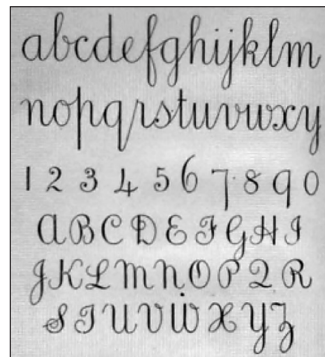 abcdefghijklm
nopqrstuvwxy
1 2 3 4 5 6 7 8 9 0
A B C D E F G H I
J K L M N O P Q R
S T U V W X Y Z